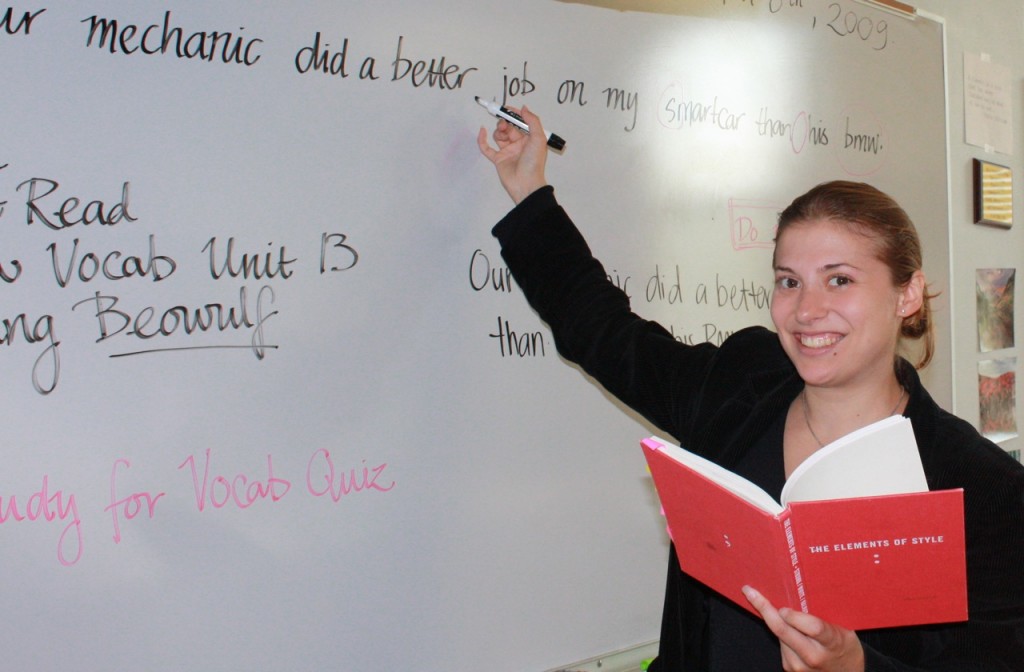 , 2009
mechanic did a better job on my smartcar than his bmw.
Read
Vocab Unit 13
Beowulf
Do
Our did a better
than his
for Vocab Quiz
THE ELEMENTS OF STYLE